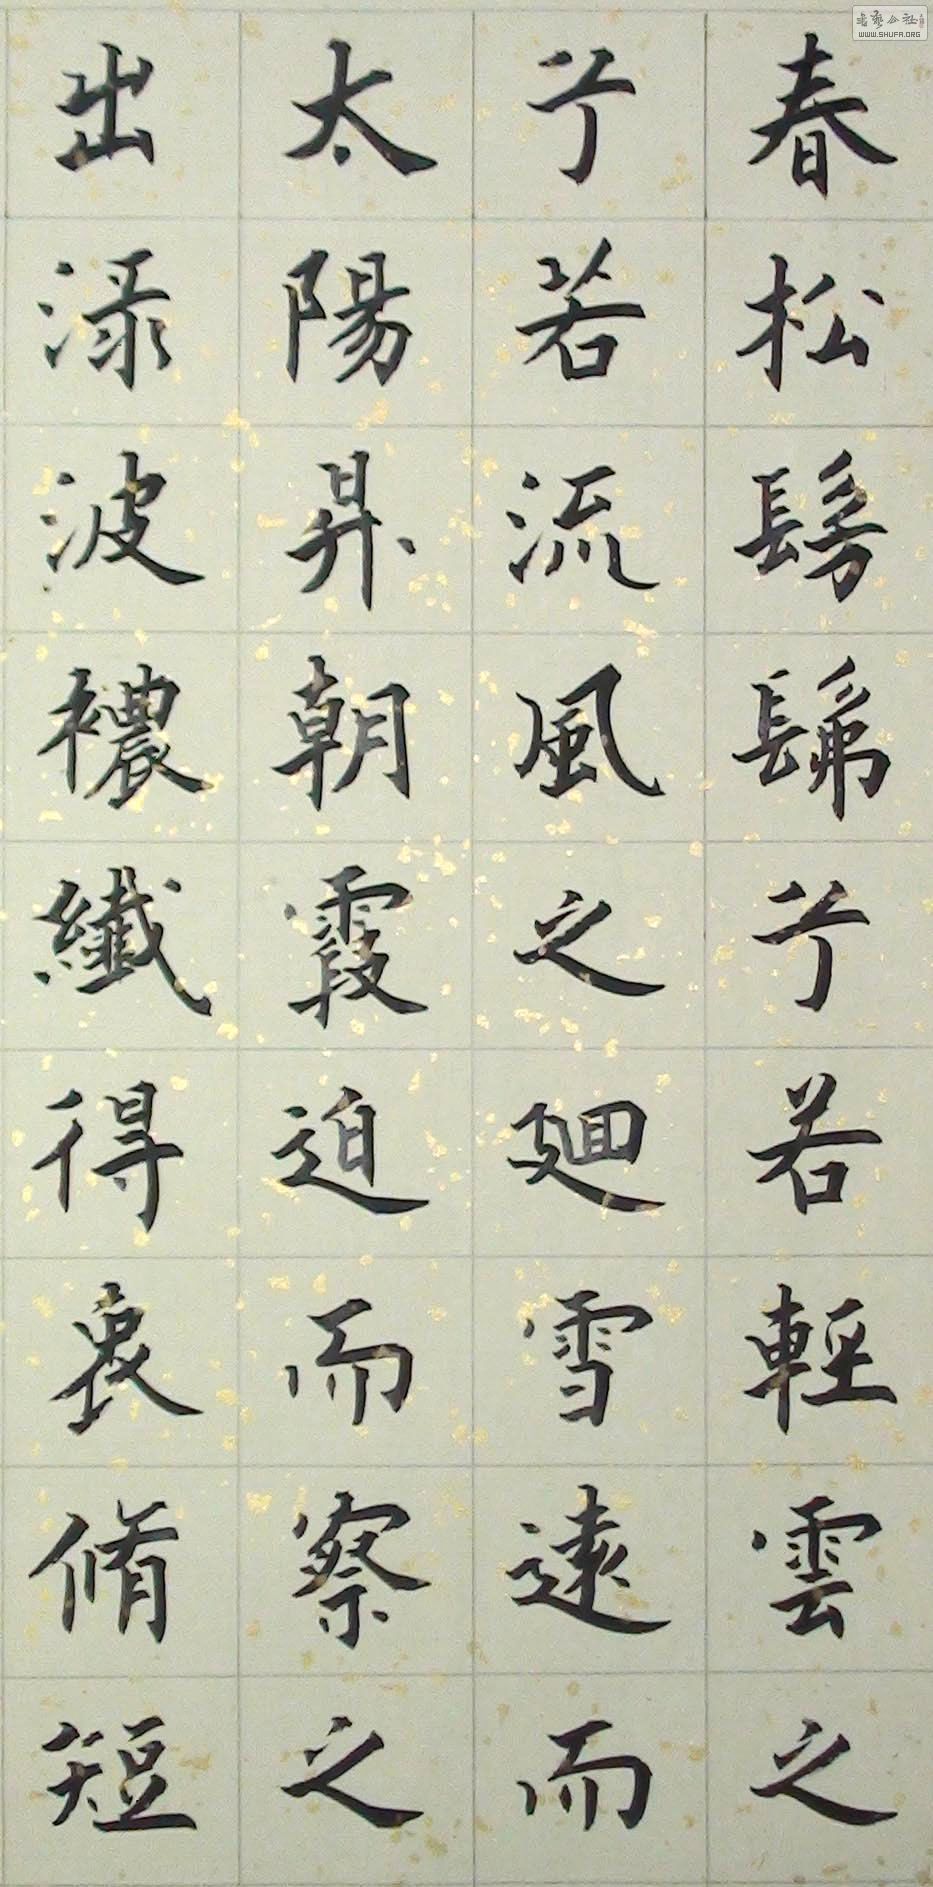 春松髣髴兮若輕雲之
兮若流風之迴雪遠而
太陽昇朝霞迫而察之
出渌波襛纖得衷脩短
書藝公社
WWW.SHUFA.ORG